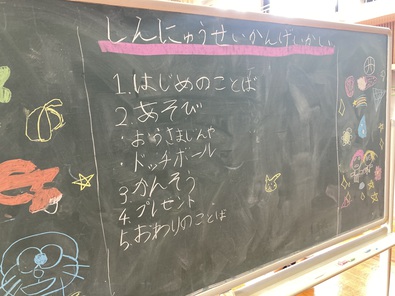 しんにゅうせいかんげいかい
1.はじめのことば
2.あそび
・おうさまじんや
・ドッチボール
3.かんそう
4.プレゼント
5.おわりのことば